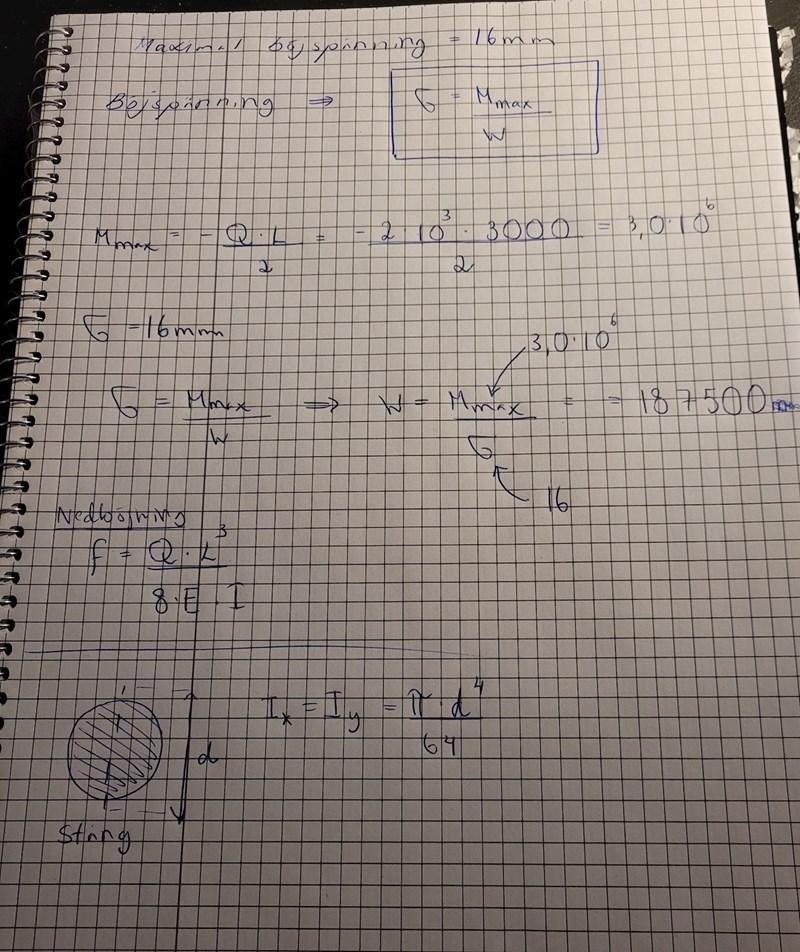 Maximal böjspänning = 16mm
Böjspänning ⇒ σ = Mmax / W
Mmax = - Q · L / 2 = - 2 · 10³ · 3000 / 2 = 3,0 · 10⁶
σ = 16mm
3,0 · 10⁶
σ = Mmax / W ⇒ W = Mmax / σ = = 187500
16
Nedböjning
f = Q · L³ / 8 · E · I
Ix = Iy = π · d⁴ / 64
d
Stång